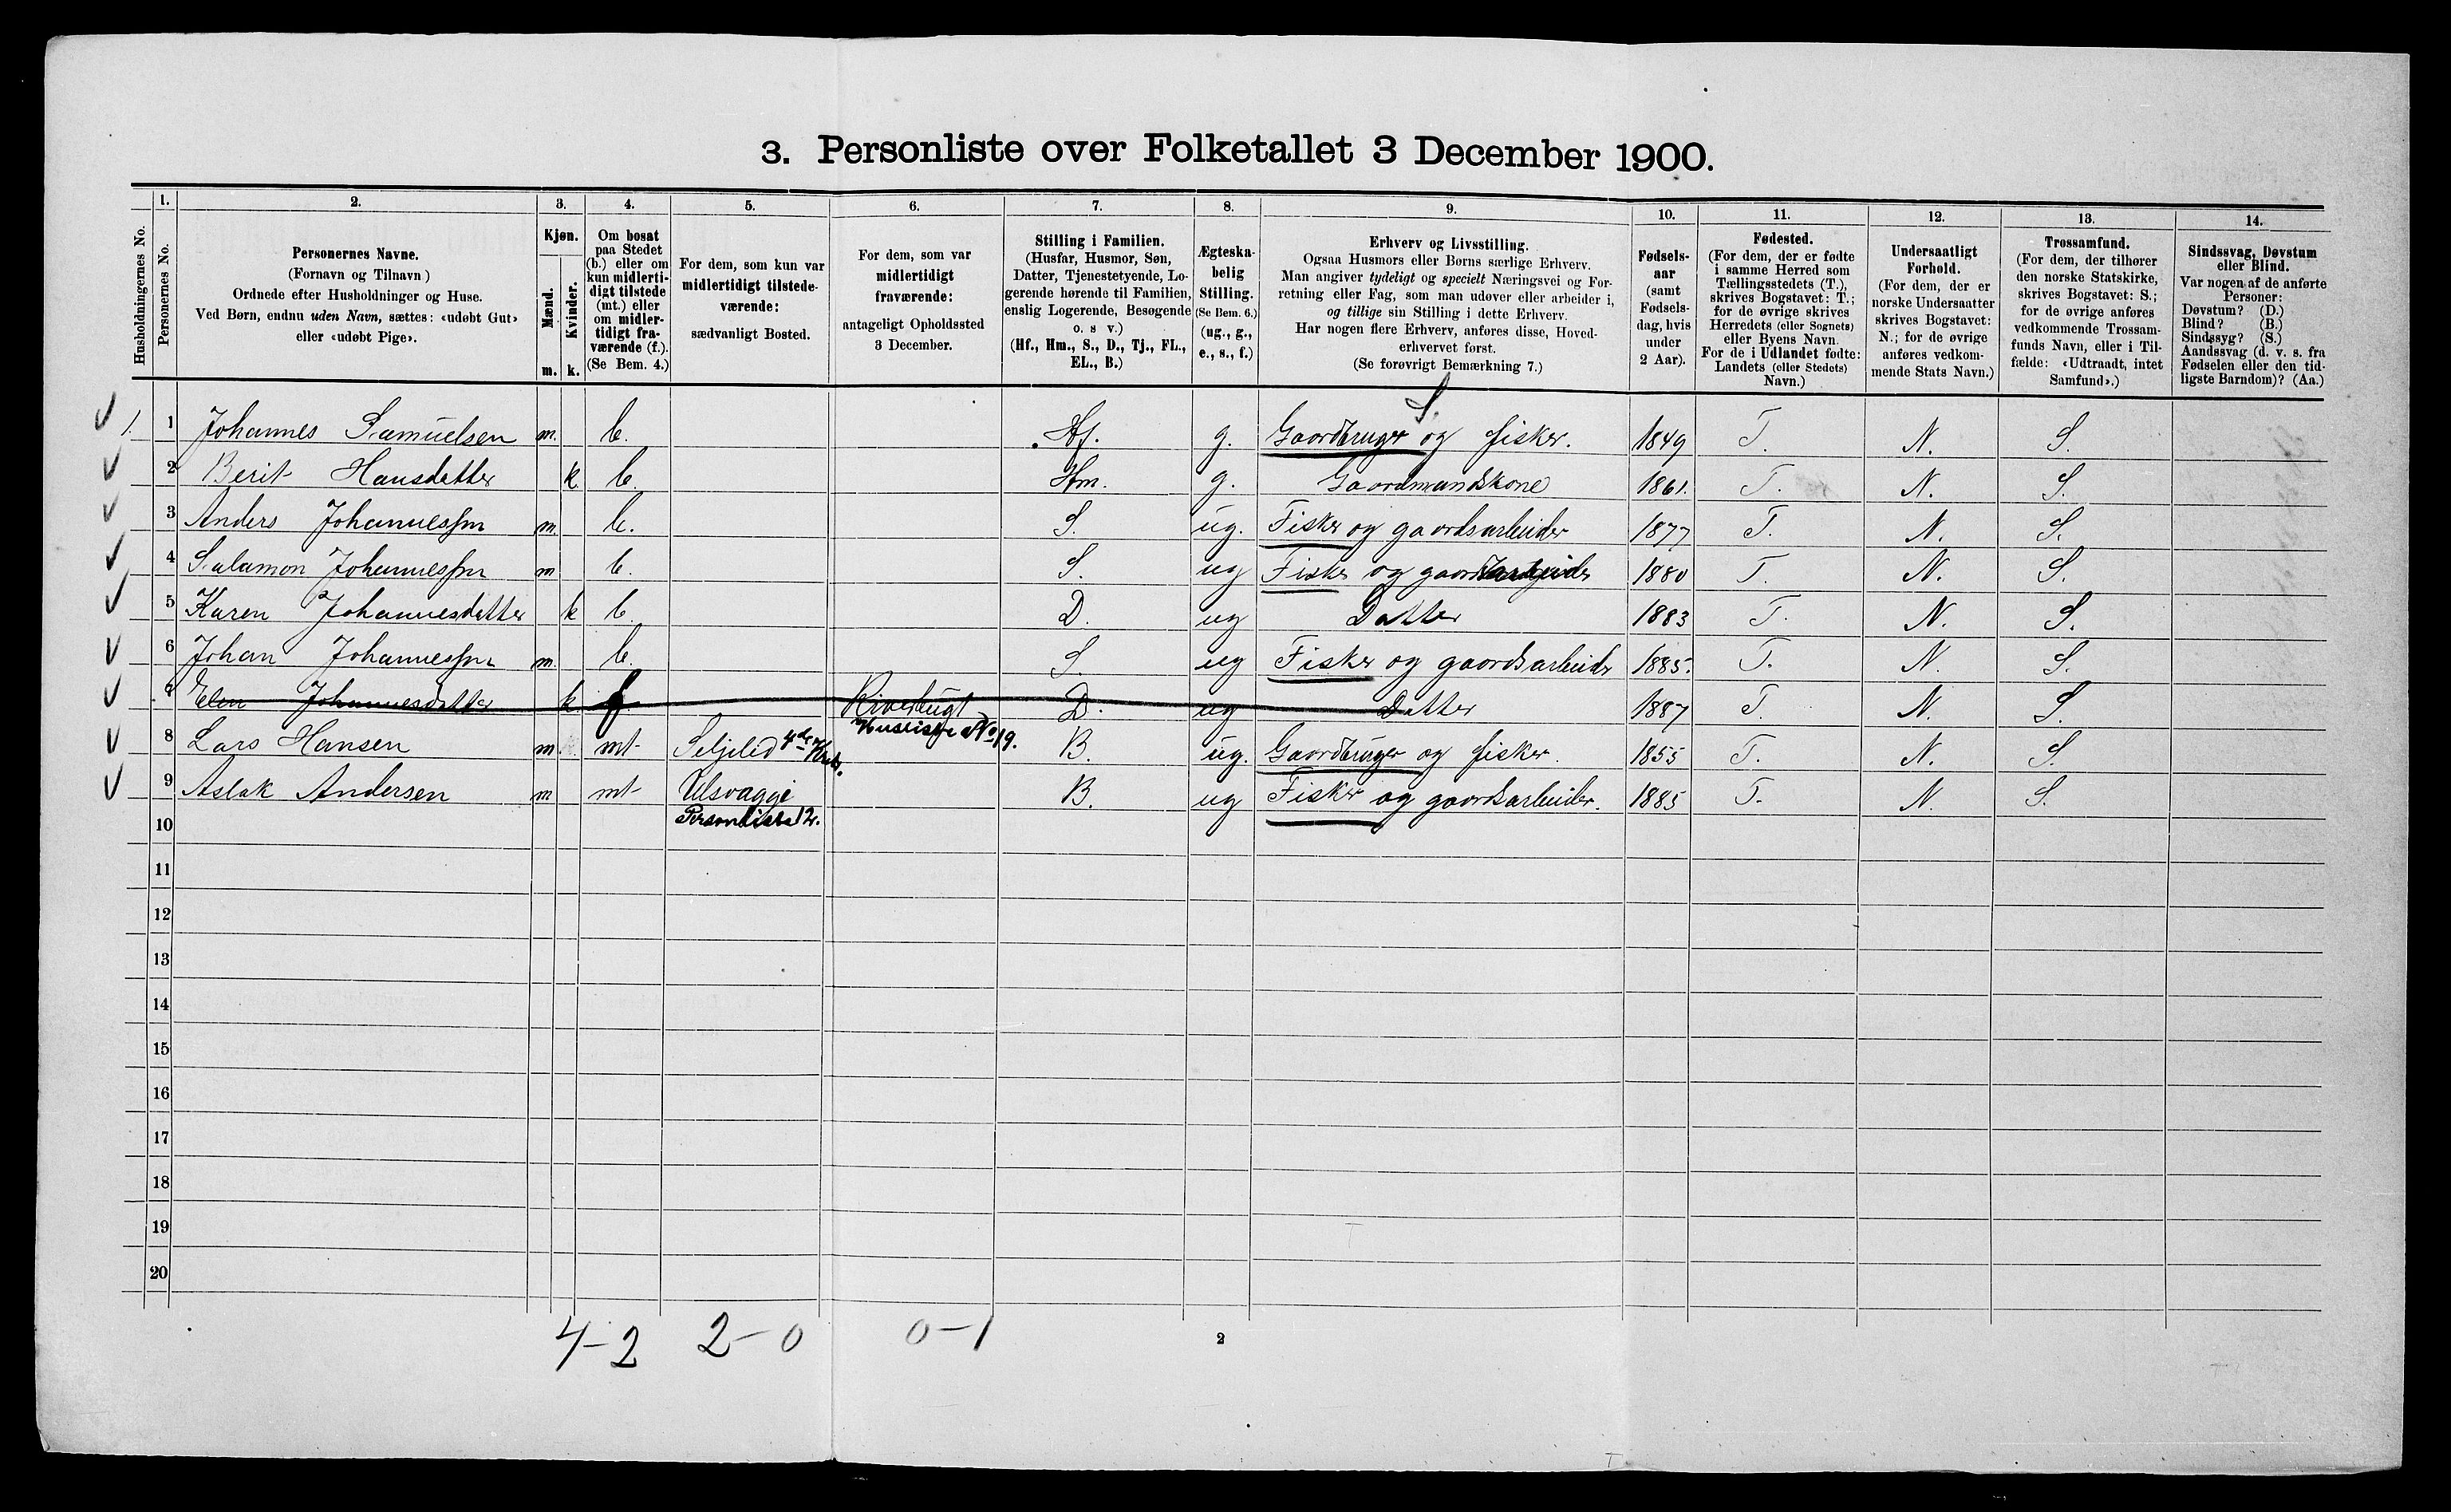 3. Personliste over Folketallet 3 December 1900.
Husholdningernes No.
1.
Personernes No.
2.
Personernes Navne.
(Fornavn og Tilnavn)
Ordnede efter Husholdninger og Huse.
Ved Børn, endnu uden Navn, sættes: «udøbt Gut»
eller «udøbt Pige».
3.
Kjøn.
Mænd.
Kvinder.
m. k.
4.
Om bosat
paa Stedet
(b.) eller om
kun midlerti-
digt tilstede
(mt.) eller
om midler-
tidigt fra-
værende (f.).
(Se Bem. 4.)
5.
For dem, som kun var
midlertidigt tilstede-
værende:
sædvanligt Bosted.
6.
For dem, som var
midlertidigt
fraværende:
antageligt Opholdssted
3 December.
7.
Stilling i Familien.
(Husfar, Husmor, Søn,
Datter, Tjenestetyende, Lo-
gerende hørende til Familien,
enslig Logerende, Besøgende
o. s v.)
(Hf., Hm., S., D., Tj., FL.,
EL., B.)
8.
Ægteska-
belig
Stilling.
(Se Bem. 6.)
(ug., g.,
e., s., f.)
9.
Erhverv og Livsstilling.
Ogsaa Husmors eller Børns særlige Erhverv.
Man angiver tydeligt og specielt Næringsvei og For-
retning eller Fag, som man udøver eller arbeider i,
og tillige sin Stilling i dette Erhverv.
Har nogen flere Erhverv, anføres disse, Hoved-
erhvervet først.
(Se forøvrigt Bemærkning 7.)
10.
Fødsels-
aar
(samt
Fødsels-
dag, hvis
under
2 Aar).
11.
Fødested.
(For dem, der er fødte
i samme Herred som
Tællingsstedets (T.),
skrives Bogstavet: T.;
for de øvrige skrives
Herredets (eller Sognets)
eller Byens Navn.
For de i Udlandet fødte:
Landets (eller Stedets)
Navn.)
12.
Undersaatligt
Forhold.
(For dem, der er
norske Undersaatter
skrives Bogstavet:
N.; for de øvrige
anføres vedkom-
mende Stats Navn.)
13.
Trossamfund.
(For dem, der tilhører
den norske Statskirke,
skrives Bogstavet: S.;
for de øvrige anføres
vedkommende Trossam-
funds Navn, eller i Til-
fælde: «Udtraadt, intet
Samfund».)
14.
Sindssvag, Døvstum
eller Blind.
Var nogen af de anførte
Personer:
Døvstum? (D.)
Blind? (B.)
Sindssyg? (S.)
Aandssvag (d. v. s. fra
Fødselen eller den tid-
ligste Barndom)? (Aa.)
S.
1. 1 Johannes Samuelsen m. b. Hf. g. Gaardbruger og fisker. 1849 T. N. S.
2 Berit Hansdatter k b. Hm. g. Gaardmandskone 1861. T. N. S.
3 Anders Johannessen m. b. S. ug. Fisker og gaardsarbeider 1877 T. N. S.
4 Salamon Johannessen m b. S. ug Fisker og gaardsarbeider 1880 T. N. S.
5 Karen Johannesdatter k b D. ug Datter 1883 T. N. S.
6 Johan Johannessen m. b. S. ug Fisker og gaardsarbeider 1885. T. N. S.
7 Elen Johannesdatter k. f Riverbugt D. ug Datter 1887 T. N. S.
Husliste No 19.
8 Lars Hansen m mt Seljelid 4de Kreds. B. ug. Gaardbruger og fisker. 1855 T. N. S.
9 Aslak Andersen m mt Ulsvaggi B. ug Fisker og gaardsarbeider. 1885 T. N. S.
Personliste 12.
10
11
12
13
14
15
16
17
18
19
20
4-2 2-0 0-1
2